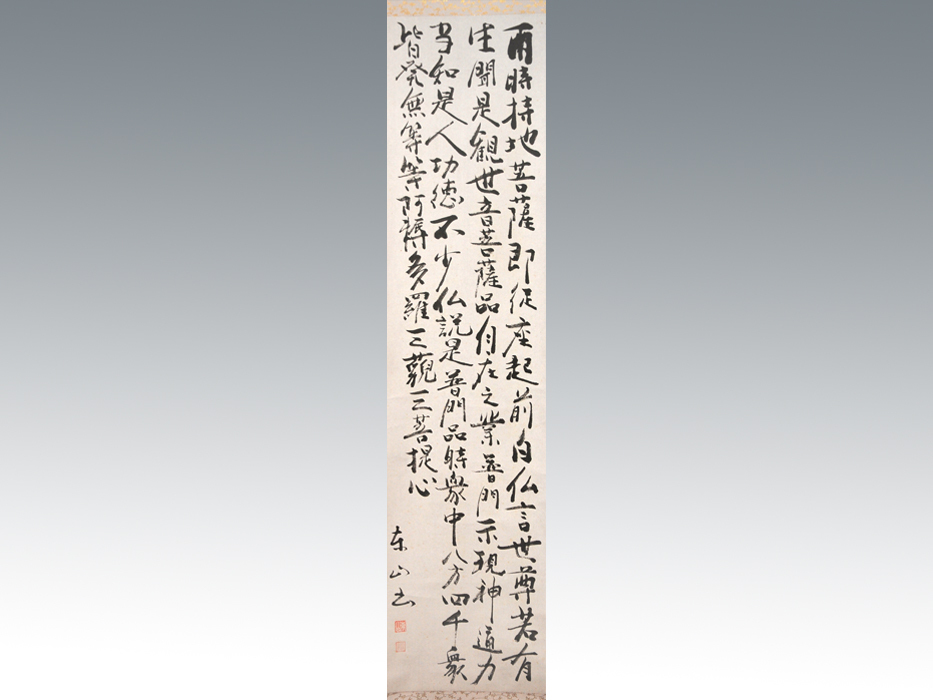 爾時持地菩薩即従座起前白仏言世尊若有
生聞是観世音菩薩品自在之業普門示現神通力
当知是人功徳不少仏説是普門品時衆中八万四千衆
皆発無等等阿耨多羅三藐三菩提心
东山書